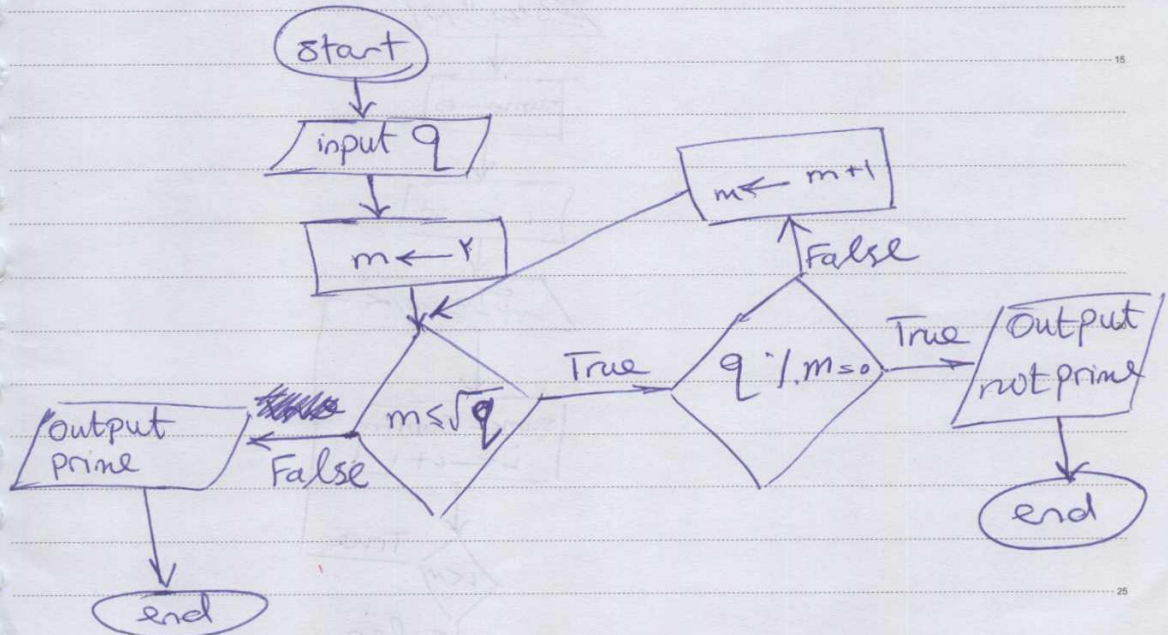 start
input q
m ← ۲
m ← m+1
False
m ≤ √q
True
q % m = 0
True
Output
not prime
False
output
prime
end
end
15
25